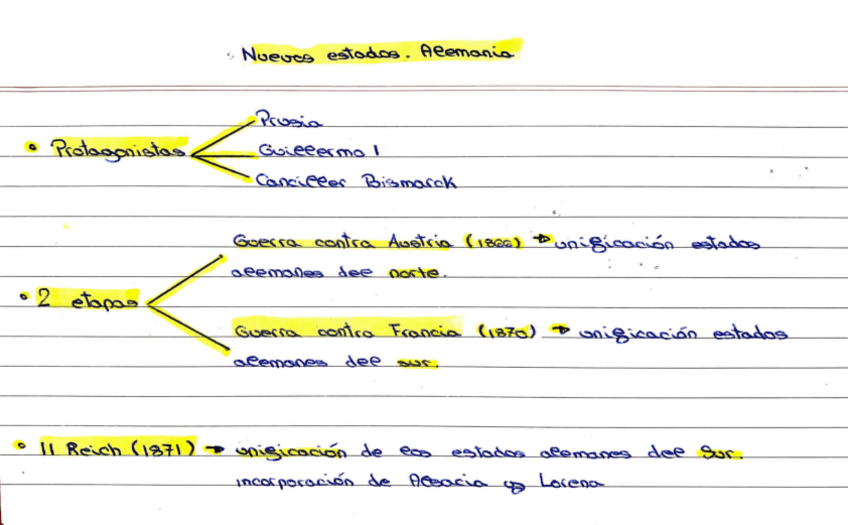 Nuevos estados. Alemania
• Protagonistas
Prusia
Guillermo I
Canciller Bismarck
• 2 etapas
Guerra contra Austria (1866) → unificación estados
alemanes del norte.
Guerra contra Francia (1870) → unificación estados
alemanes del sur.
• II Reich (1871) → unificación de los estados alemanes del Sur.
incorporación de Alsacia y Lorena